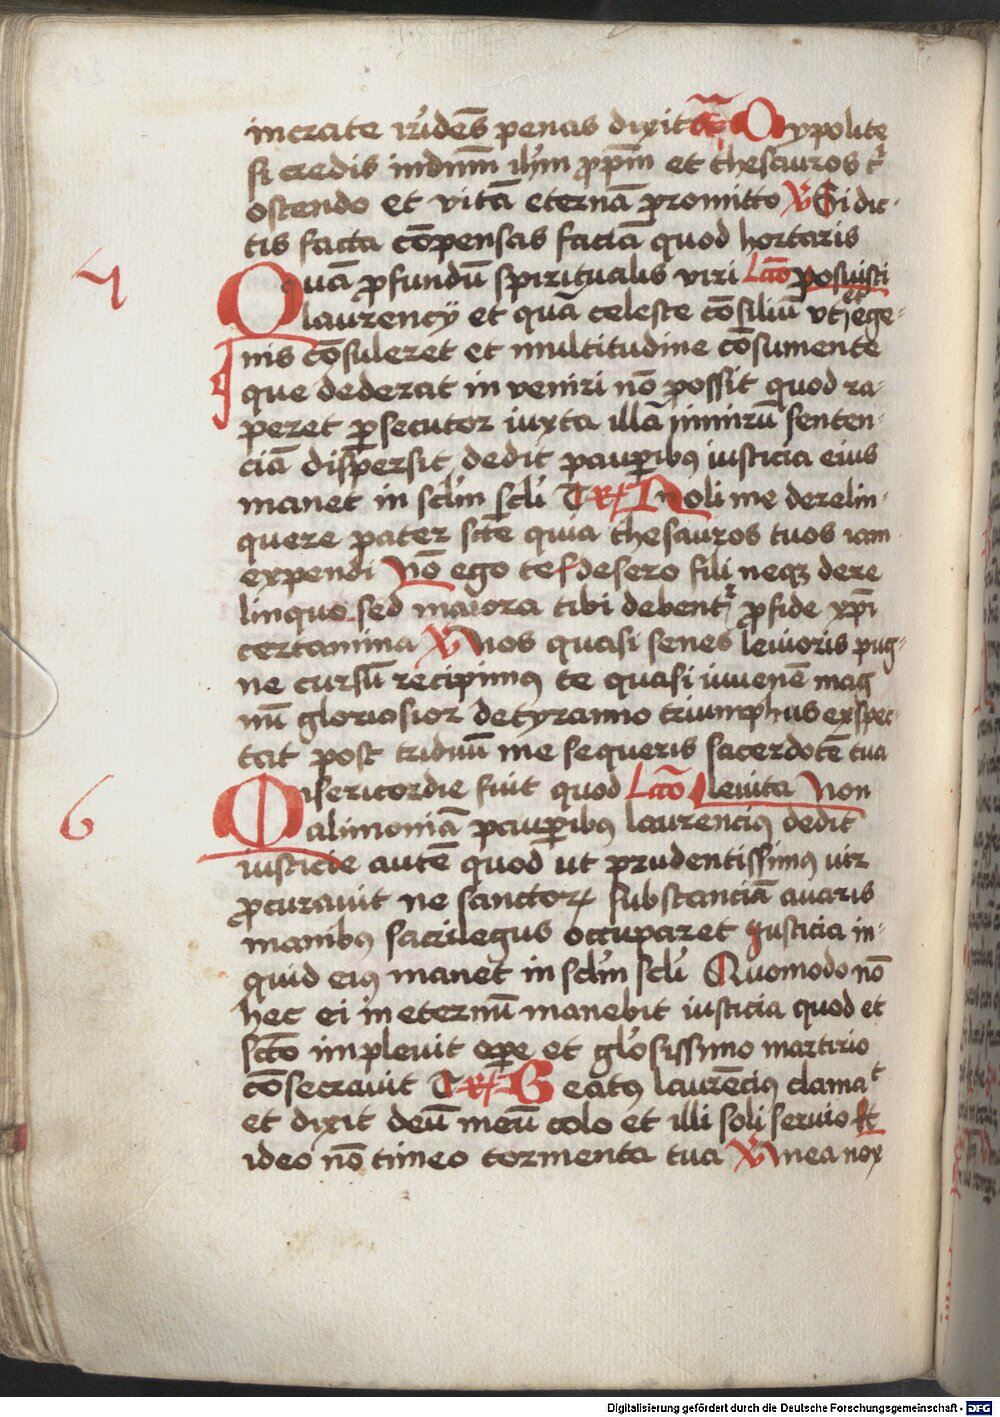 in crate rꝛidēs penas dixit Oypolite
si credis in dnm̄ ihm̄ xp̄m et thesauros tꝰ
ostendo et vitā eternā promitto V Si dic-
tis facta cōpensas faciā quod hortaris
7
Quā ꝓfundū spiritualis viri Lcō posuisti
laurency et quā celeste cōsiliū vt et ege-
nis cōsuleret et multitudine cōsumente
que dederat in veniri nō possit quod ra-
peret ꝑsecutor iuxta illā nimirū senten-
ciā dispersit dedit pauꝑibꝰ iusticia eius
manet in sclm̄ scl̄i T R Noli me derelin-
quere pater scte quia thesauros tuos iam
expendi Nō ego te desero fili neqꝫ dere
linquo sed maiora tibi debentᷣ ꝓ fide xp̄i
certamina V Nos quasi senes leuioris pug-
ne cursū recipimꝰ te quasi iuuenē mag
nū gloriosior de tyranno triumphus exspec-
tat post triduū me sequeris sacerdotē leuita
6
Misericordie fuit quod Lcō leuita Non
alimoniā pauꝑibꝰ laurenciꝰ dedit
iusticie autē quod ut prudentissimꝰ vir
ꝓcurauit ne sanctoꝝ substanciā auaris
manibꝰ sacrilegus occuparet Iusticia in-
quid eiꝰ manet in sclm̄ scl̄i Quomodo nō
hec ei in eternū manebit iusticia quod et
sctō impleuit oꝑe et glōsissimo martirio
cōsecrauit T R Beatꝰ laurēciꝰ clamat
et dixit deū meū colo et illi soli seruio Et
ideo nō timeo tormenta tua V Mea nox
Digitalisierung gefördert durch die Deutsche Forschungsgemeinschaft - DFG